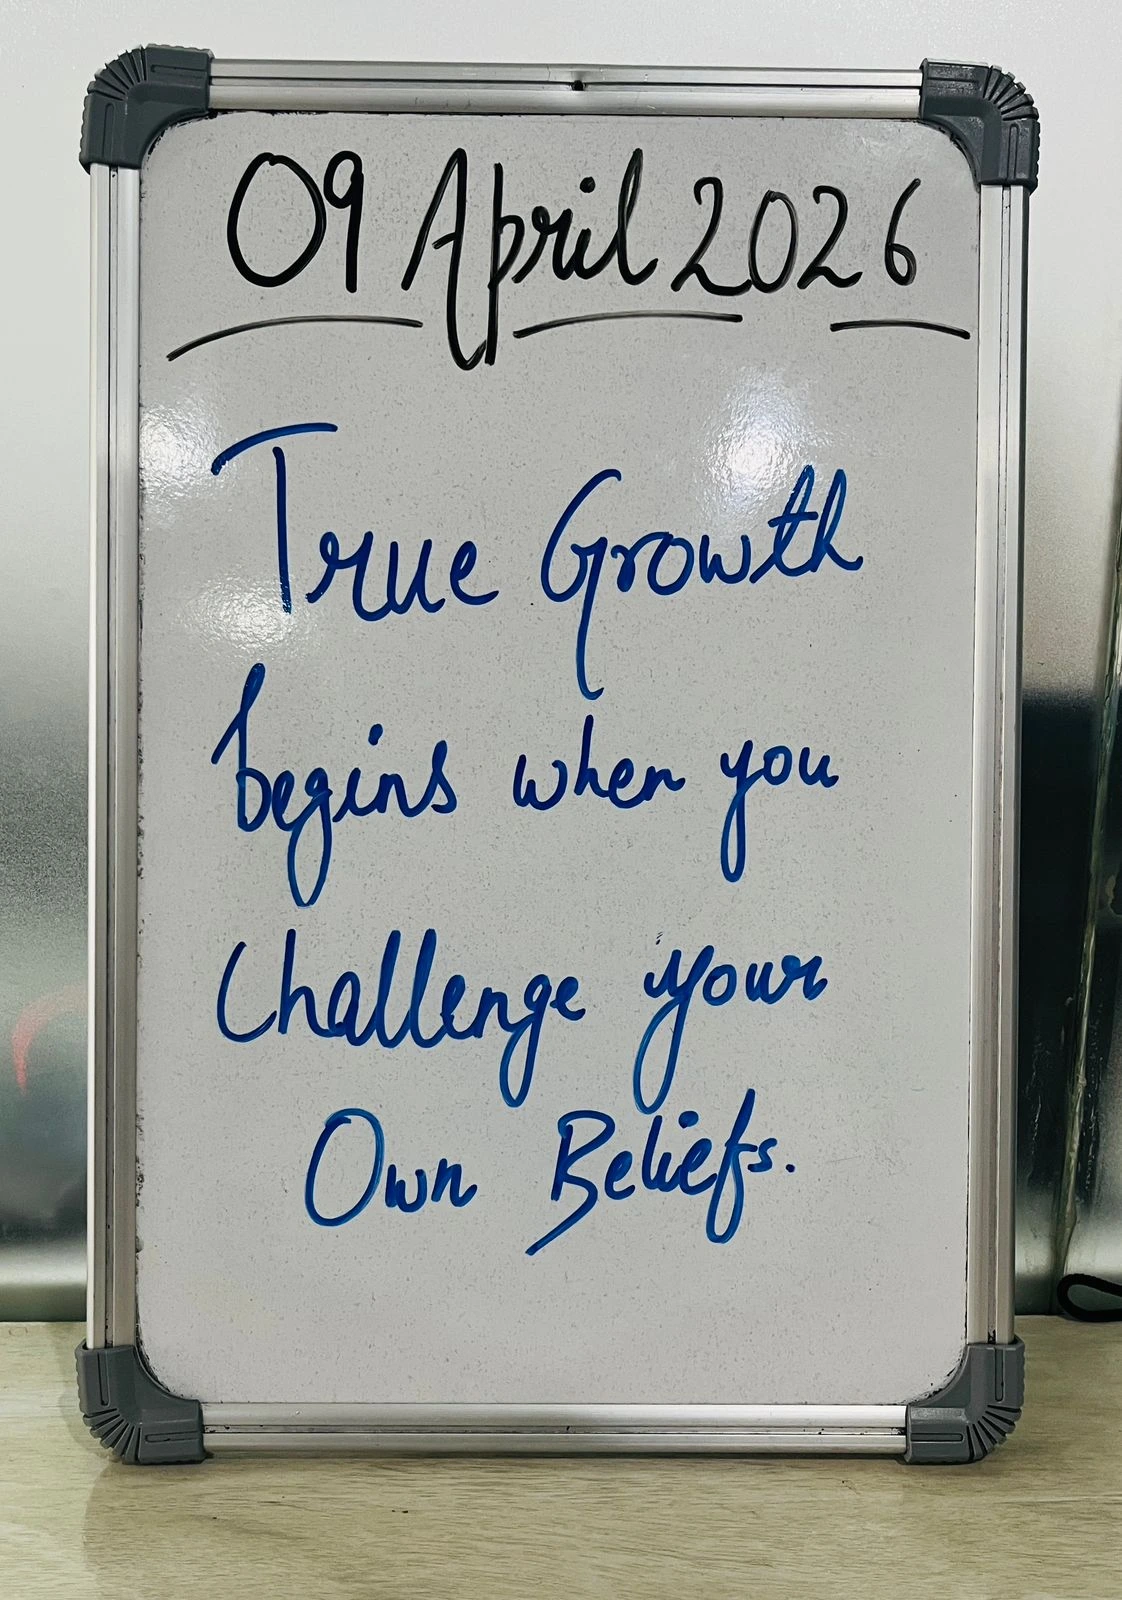 09 April 2026
True Growth
begins when you
Challenge your
Own Beliefs.